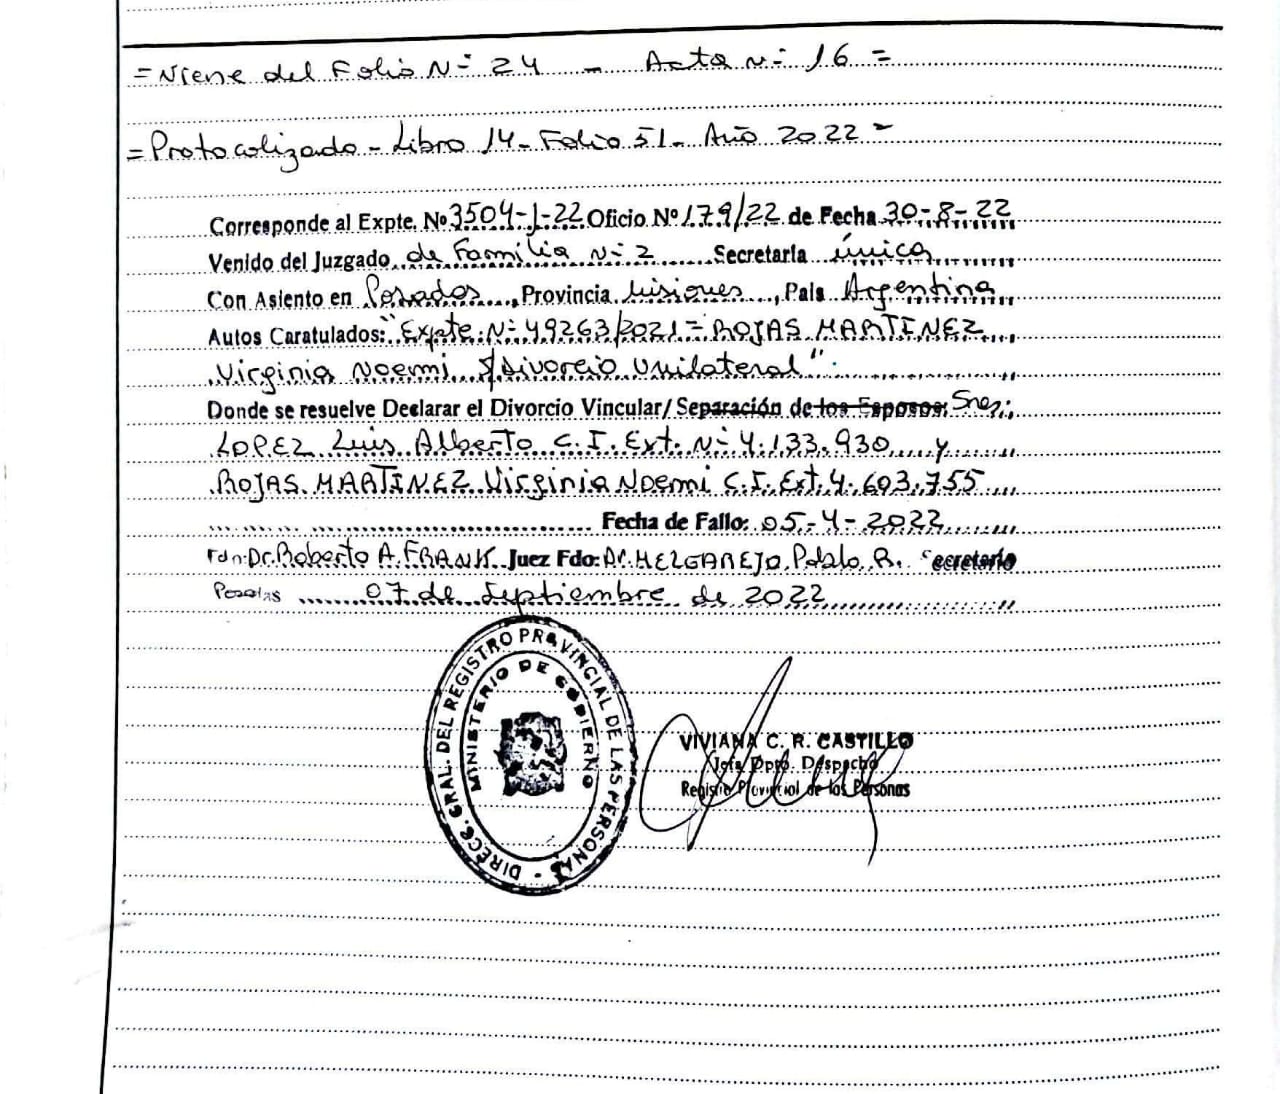 = Viene del Folio N= 24 - Acta N= 16 =
= Protocolizado - Libro 14 - Folio 51 - Año 2022 =
Corresponde al Expte. Nº 3504-J-22 Oficio Nº 179/22 de Fecha 30-8-22
Venido del Juzgado de Familia N= 2 Secretaria única
Con Asiento en Posadas, Provincia Misiones, Pais Argentina
Autos Caratulados: "Expte. N= 49263/2021 = ROJAS MARTINEZ
Virginia Noemi s/Divorcio Unilateral"
Donde se resuelve Declarar el Divorcio Vincular/ Separación de los Esposos: Sres.:
LOPEZ Luis Alberto C.I. Ext. N= 4.133.930 y
ROJAS MARTINEZ Virginia Noemi C.I. Ext. 4.603.755
Fecha de Fallo: 05-4-2022
Fdo: Dr. Roberto A. FRANK Juez Fdo: Dr. MELGAREJO Pablo R. Secretario
Posadas 07 de Septiembre de 2022
DIRECC. GRAL. DEL REGISTRO PROVINCIAL DE LAS PERSONAS
MINISTERIO DE GOBIERNO
VIVIANA C. R. CASTILLO
Jefa Dpto. Despacho
Registro Provincial de las Personas